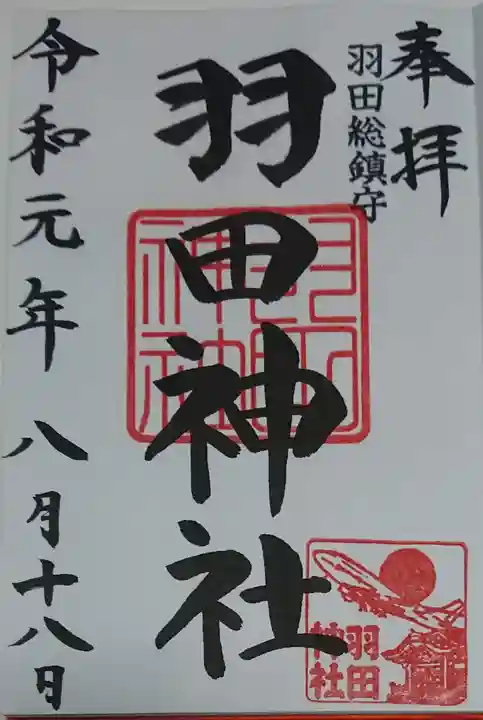 奉拝
羽田総鎮守
羽田神社
羽田神社
令和元年 八月十八日
羽田
神社